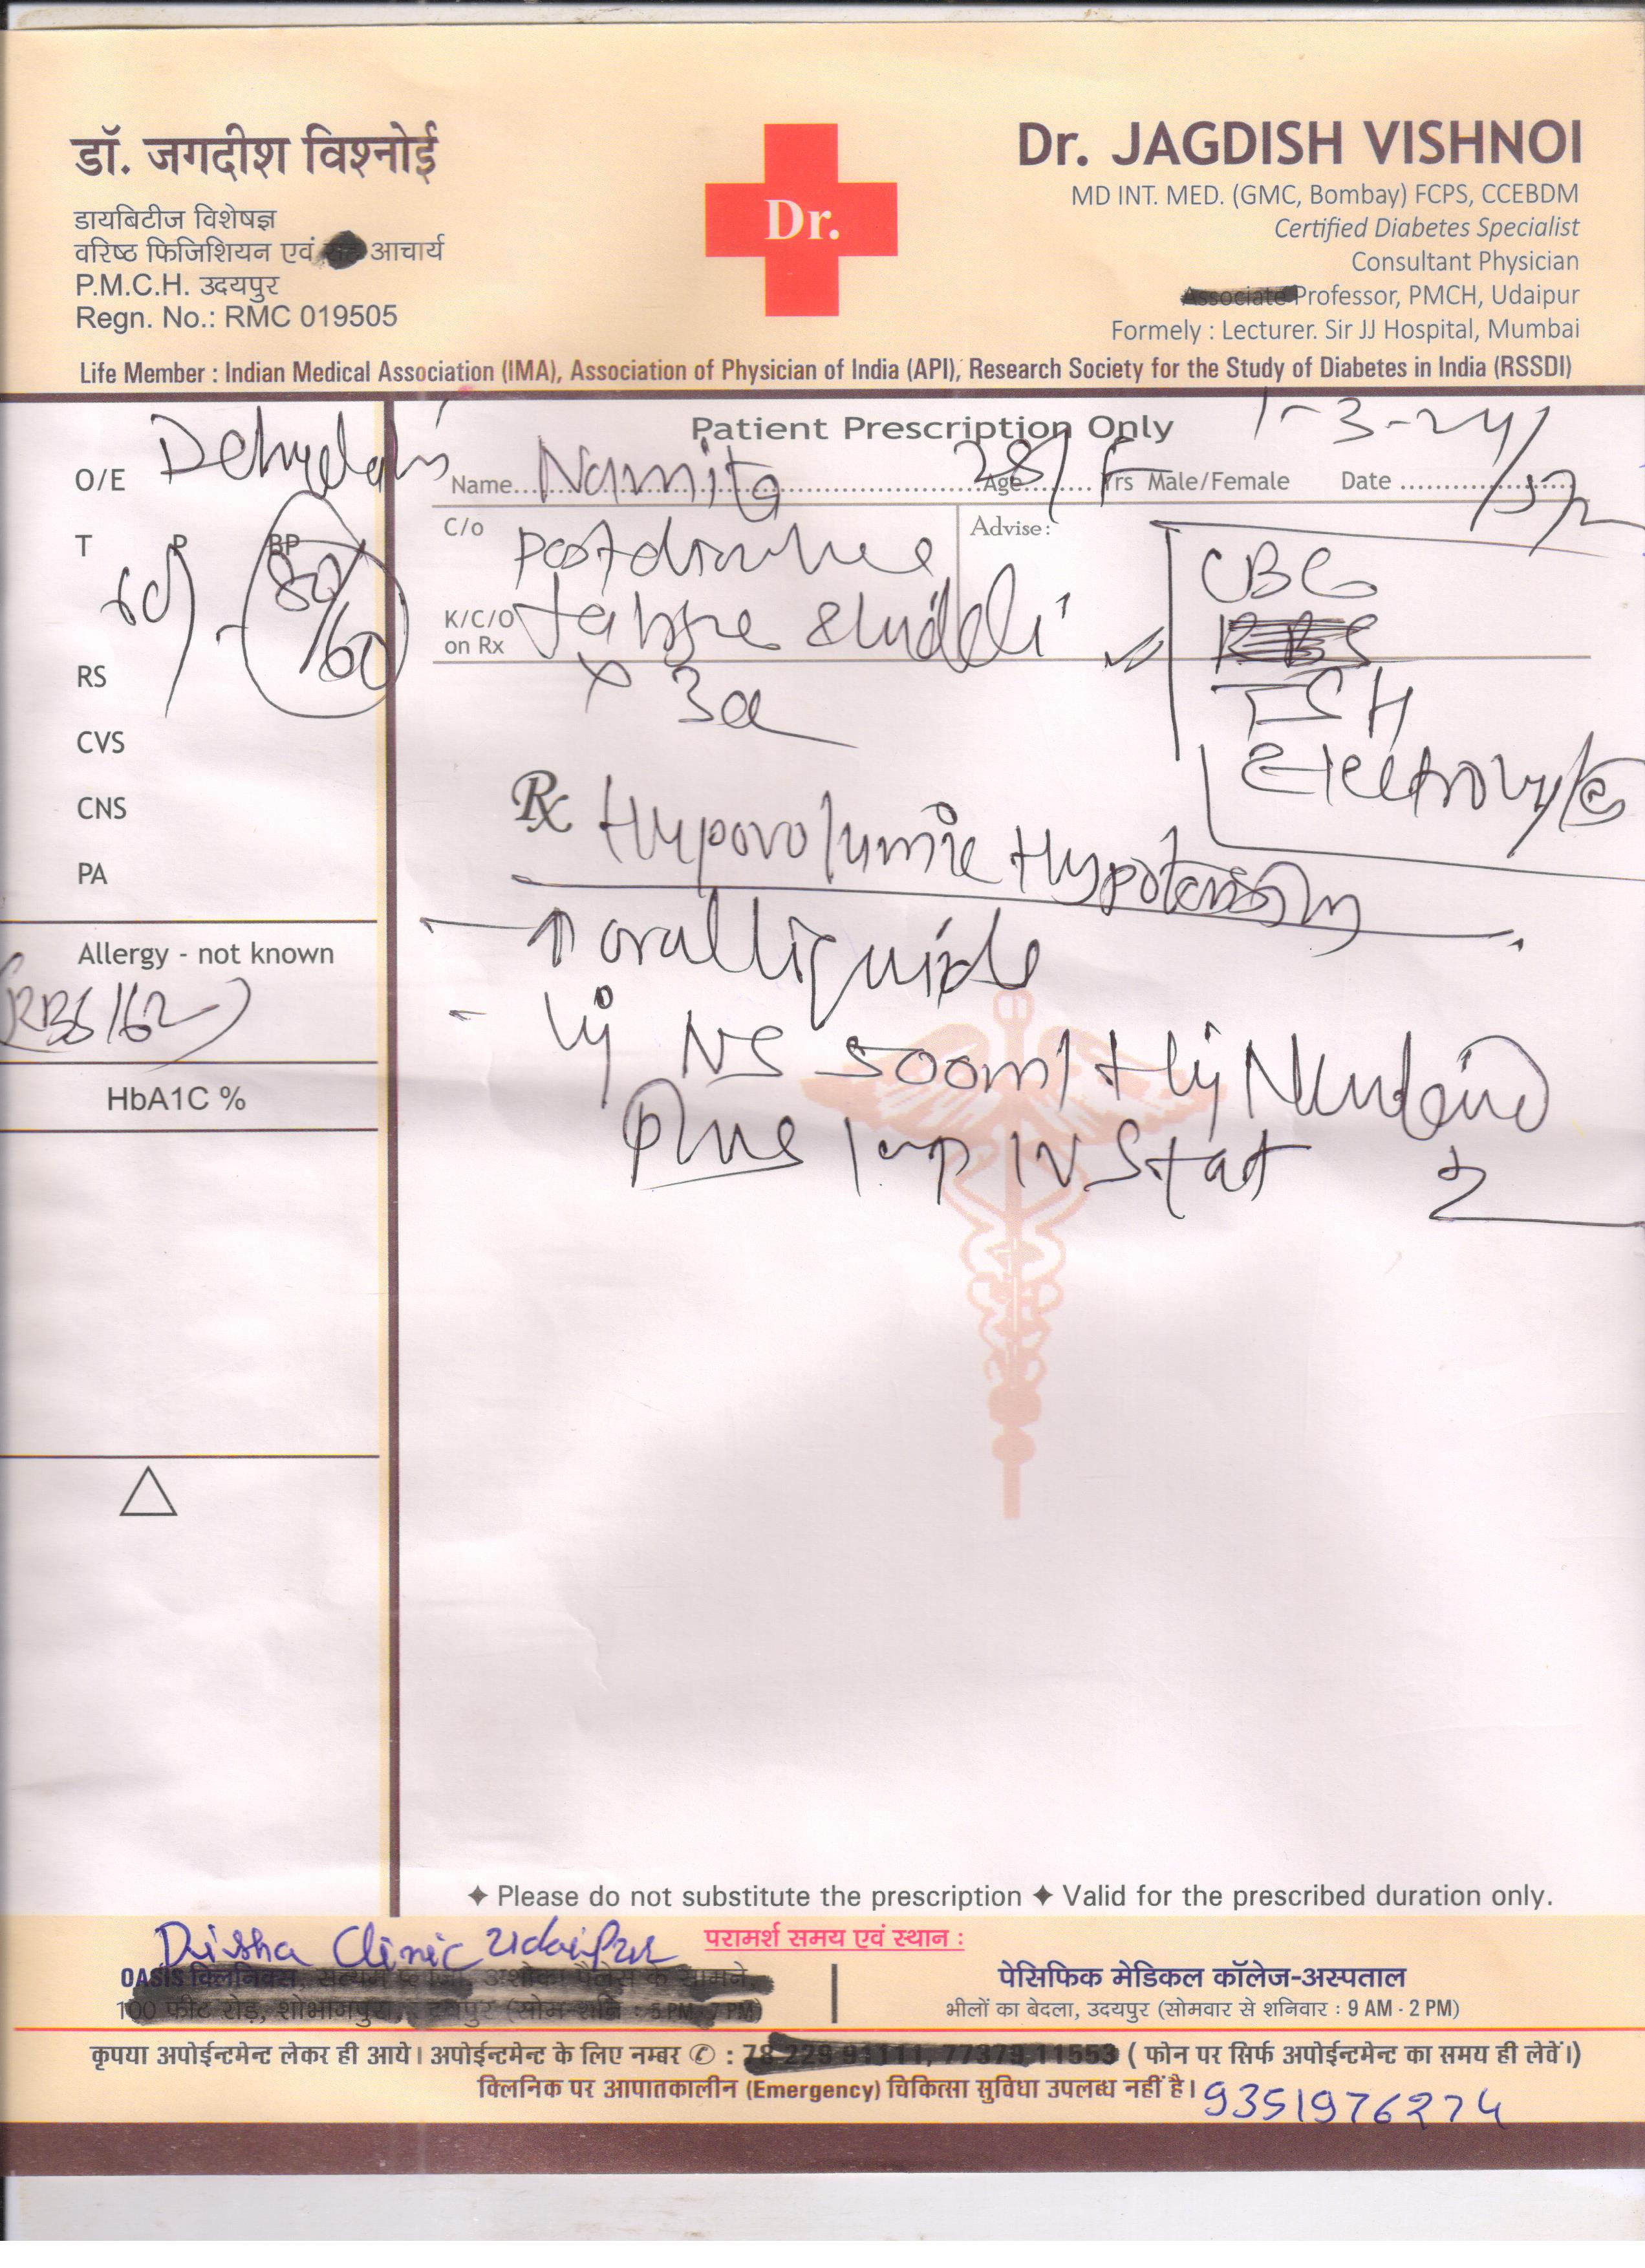 डॉ. जगदीश विश्नोई
डायबिटीज विशेषज्ञ
वरिष्ठ फिजिशियन एवं आचार्य
P.M.C.H. उदयपुर
Regn. No.: RMC 019505
Dr.
Dr. JAGDISH VISHNOI
MD INT. MED. (GMC, Bombay) FCPS, CCEBDM
Certified Diabetes Specialist
Consultant Physician
Associate Professor, PMCH, Udaipur
Formely : Lecturer. Sir JJ Hospital, Mumbai
Life Member : Indian Medical Association (IMA), Association of Physician of India (API), Research Society for the Study of Diabetes in India (RSSDI)
Patient Prescription Only
1-3-24
Name Namita 28/F Age Yrs Male/Female Date
O/E
T P BP
80/60
RS
CVS
CNS
PA
Allergy - not known
RBS 162
HbA1C %
C/o
K/C/O
on Rx
3d
Advise:
CBC
RBS
TSH
Electrolyte
Rx Hypovolumic Hypotension
- ↑ oral liquids
- Inj NS 500ml + Inj
Plus 1 amp IV Stat
✦ Please do not substitute the prescription ✦ Valid for the prescribed duration only.
Disha Clinic Udaipur
OASIS क्लिनिक्स, अशोका पैलेस के सामने,
100 फीट रोड़, शोभागपुरा,
परामर्श समय एवं स्थान :
पेसिफिक मेडिकल कॉलेज-अस्पताल
भीलों का बेदला, उदयपुर (सोमवार से शनिवार : 9 AM - 2 PM)
कृपया अपोईन्टमेन्ट लेकर ही आये। अपोईन्टमेन्ट के लिए नम्बर ✆ : ( फोन पर सिर्फ अपोईन्टमेन्ट का समय ही लेवें।)
क्लिनिक पर आपातकालीन (Emergency) चिकित्सा सुविधा उपलब्ध नहीं है।
9351976274